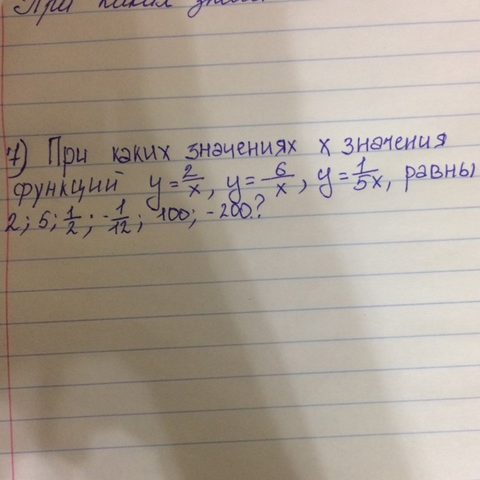 При каких
7) При каких значениях x значения
функций y=2/x, y=6/x, y=1/5x, равны
2; 6; 1/2; -1/12; 100; -200?